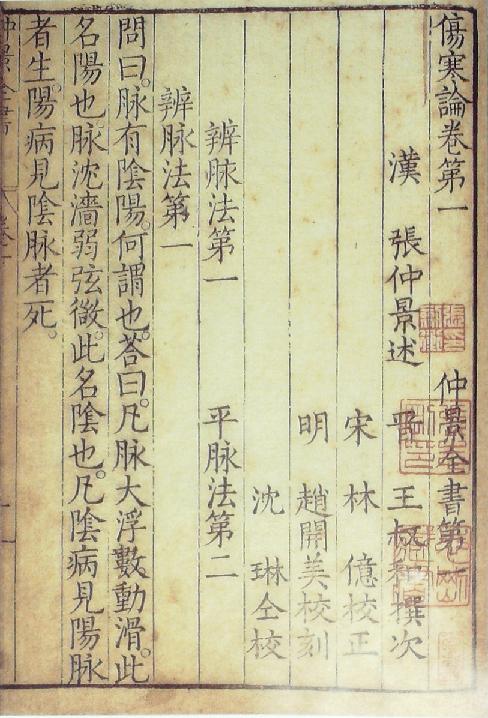 傷寒論卷第一 仲景全書第
漢 張仲景述 晉 王叔和撰次
宋 林 億校正
明 趙開美校刻
沈 琳仝校
辨脉法第一 平脉法第二
辨脉法第一
問曰。脉有陰陽。何謂也。荅曰。凡脉大浮數動滑。此
名陽也脉沈濇弱弦微。此名陰也。凡陰病見陽脉
者生。陽病見陰脉者死。
仲景全書